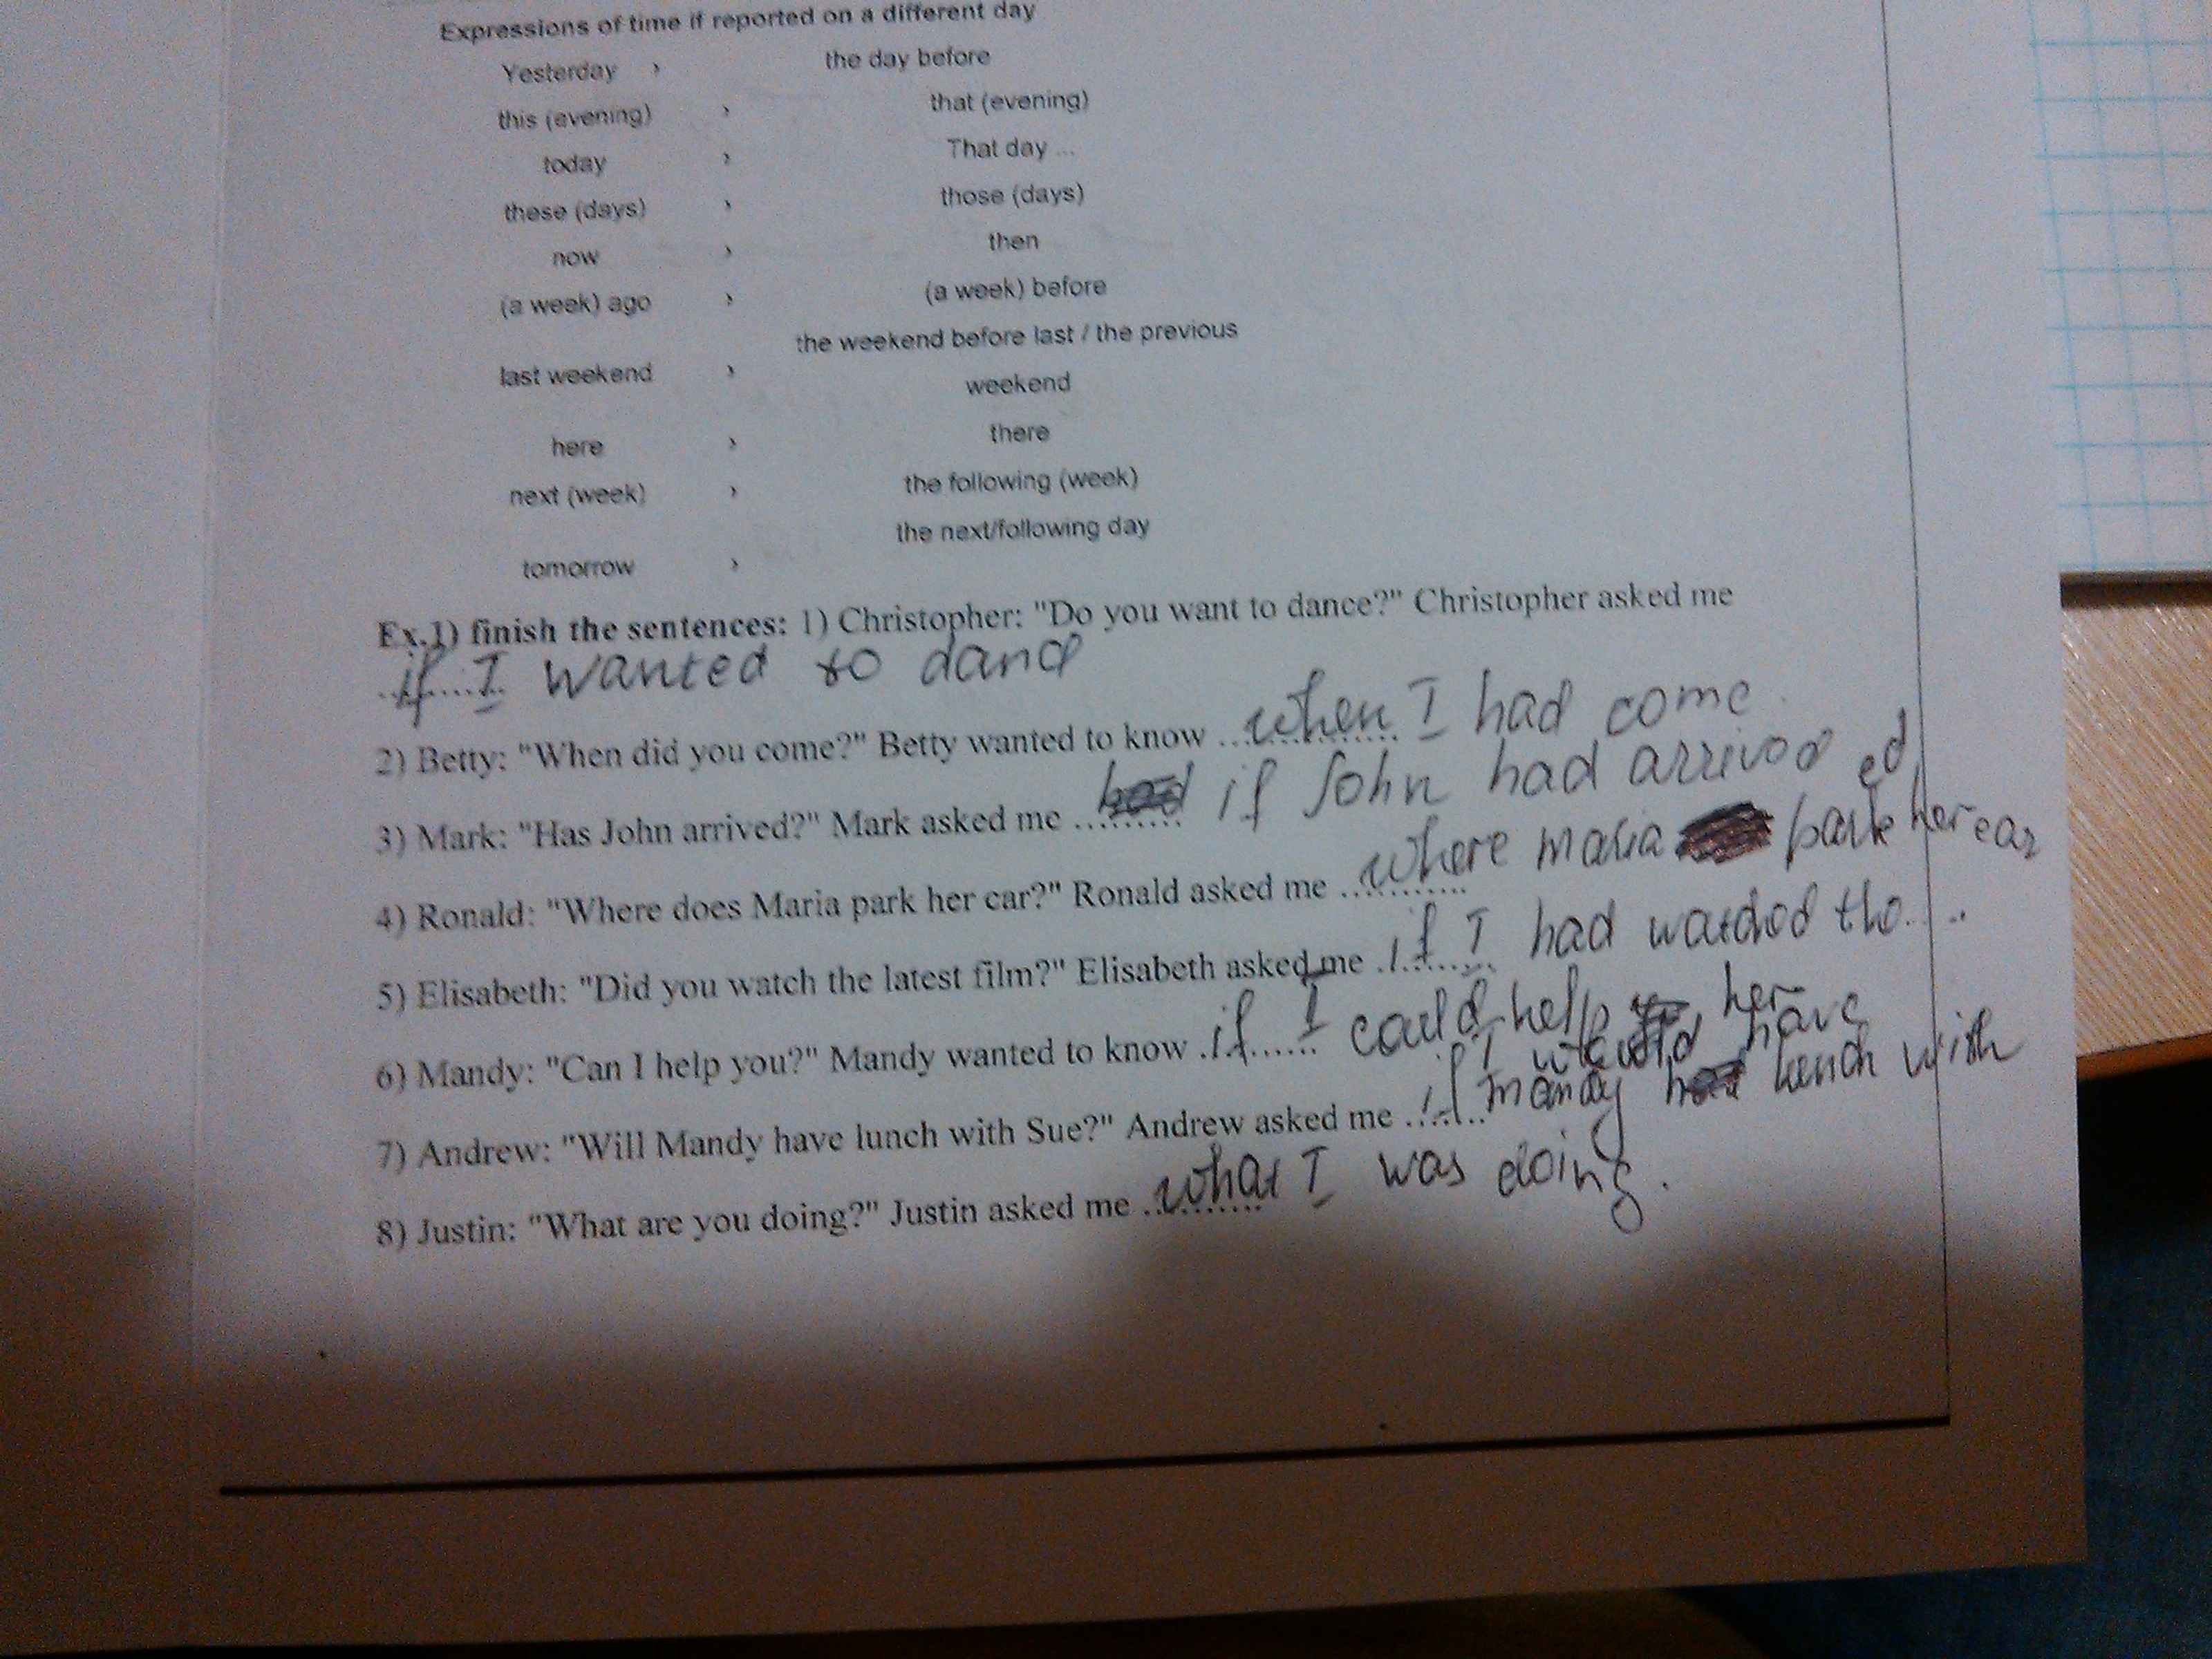 Expressions of time if reported on a different day
Yesterday › the day before
this (evening) › that (evening)
today › That day ...
these (days) › those (days)
now › then
(a week) ago › (a week) before
the weekend before last / the previous
last weekend ›
weekend
here › there
next (week) › the following (week)
the next/following day
tomorrow ›
Ex.1) finish the sentences: 1) Christopher: "Do you want to dance?" Christopher asked me
if I wanted to dance
2) Betty: "When did you come?" Betty wanted to know ............... when I had come.
3) Mark: "Has John arrived?" Mark asked me ......... had if John had arrived ed
4) Ronald: "Where does Maria park her car?" Ronald asked me ........... where maria park her car
5) Elisabeth: "Did you watch the latest film?" Elisabeth asked me ......... if I had watched the...
6) Mandy: "Can I help you?" Mandy wanted to know ......... if I could help her
7) Andrew: "Will Mandy have lunch with Sue?" Andrew asked me ....... if mandy lunch with
I would have
8) Justin: "What are you doing?" Justin asked me .......... what I was doing.